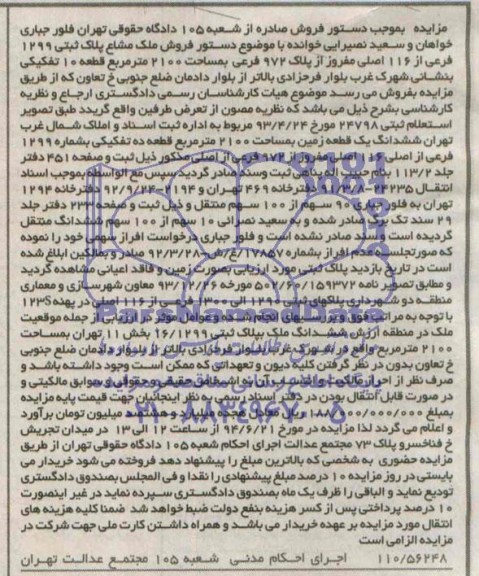 مزایده بموجب دستور فروش صادره از شعبه ۱۰۵ دادگاه حقوقی تهران فلور جباری
خواهان و سعید نصیرایی خوانده با موضوع دستور فروش ملک مشاع پلاک ثبتی ۱۲۹۹
فرعی از ۱۱۶ اصلی مفروز از پلاک ۹۷۲ فرعی بمساحت ۲۱۰۰ مترمربع قطعه ۱۰ تفکیکی
بنشانی شهرک غرب بلوار فرحزادی بالاتر از بلوار دادمان ضلع جنوبی خ تعاون که از طریق
مزایده بفروش می رسد موضوع هیات کارشناسان رسمی دادگستری ارجاع و نظریه
کارشناسی بشرح ذیل می باشد که نظریه مصون از تعرض طرفین واقع گردید طبق تصویر
استعلام ثبتی ۲۴۷۹۸ مورخ ۹۳/۴/۲۴ مربوط به اداره ثبت اسناد و املاک شمال غرب
تهران ششدانگ یک قطعه زمین بمساحت ۲۱۰۰ مترمربع قطعه ده تفکیکی بشماره ۱۲۹۹
فرعی از اصلی ۱۱۶ مفروز از ۹۷۲ فرعی از اصلی مذکور ذیل ثبت و صفحه ۴۵۱ دفتر
جلد ۱۱۳/۲ بنام حبیب اله پناهی ثبت وسند صادر گردید سپس مع الواسطه بموجب اسناد
انتقال دفترخانه ۴۶۹ تهران و ۱۰۱۹۴ ۱۲/۹/۲۴ دفترخانه ۱۲۹۴
تهران به فلور جباری ۹۰ سهم از ۱۰۰ سهم منتقل و ذیل ثبت و صفحه ۲۳۳ دفتر جلد
۲۹ سند تک برگ صادر شده و به سعید نصرائی ۱۰ سهم از ۱۰۰ سهم ششدانگ منتقل
گردیده است و سند صادر نشده است و فلور جباری درخواست افراز سهمی خود را نموده
که صورتجلسه عدم افراز بشماره ۱۷۸۵۷/غ/ش ۹۲/۳/۲۸ صادر و بمالکین ابلاغ شده
است در تاریخ بازدید پلاک ثبتی مورد ارزیابی بصورت زمین و فاقد اعیانی مشاهده گردید
و مطابق تصویر نامه ۵۰۰/۶۶/۱۵۹۳۷۲ مورخه معاون شهرسازی و معماری
منطقه دو شهرداری پلاکهای ثبتی ۱۲۹۰ الی ۱۳۰۰ فرعی از ۱۱۶ اصلی در پهنه S۱۲۳
با توجه به مراتب فوق و بررسیهای انجام شده و عوامل موثر در ارزیابی از جمله موقعیت
ملک در منطقه ارزش ششدانگ ملک بپلاک ثبتی ۱۶/۱۲۹۹ بخش ۱۱ تهران بمساحت
۲۱۰۰ مترمربع واقع در شهرک غرب بلوار فرحزادی بالاتر از بلوار دادمان ضلع جنوبی
خ تعاون بدون در نظر گرفتن کلیه دیون و تعهداتی که ممکن است وجود داشته باشد و
صرف نظر از احراز مالکیت و انتساب آن به اشخاص حقیقی و حقوقی و سوابق مالکیتی و
در صورت قابل انتقال بودن در دفتر اسناد رسمی به نظر اینجانبان جهت قیمت پایه مزایده
بمبلغ ریال معادل میلیارد و هشتصد میلیون تومان برآورد
و اعلام می گردد لذا مزایده در مورخ ۹۴/۶/۲۱ از ساعت ۱۲ الی ۱۳ در میدان تجریش
خ فناخسرو پلاک ۷۳ مجتمع عدالت اجرای احکام شعبه ۱۰۵ دادگاه حقوقی تهران از طریق
مزایده حضوری به شخصی که بالاترین مبلغ را پیشنهاد دهد فروخته می شود خریدار می
بایستی در روز مزایده ۱۰ درصد مبلغ پیشنهادی را نقدا و فی المجلس بصندوق دادگستری
تودیع نماید و الباقی را ظرف یک ماه بصندوق دادگستری سپرده نماید در غیر اینصورت
۱۰ درصد پرداختی پس از کسر هزینه بنفع دولت ضبط خواهد شد ضمنا کلیه هزینه های
انتقال مورد مزایده بر عهده خریدار می باشد و همراه داشتن کارت ملی جهت شرکت در
مزایده الزامی است
۱۱۰/۵۶۲۴۸ اجرای احکام مدنی شعبه ۱۰۵ مجتمع عدالت تهران